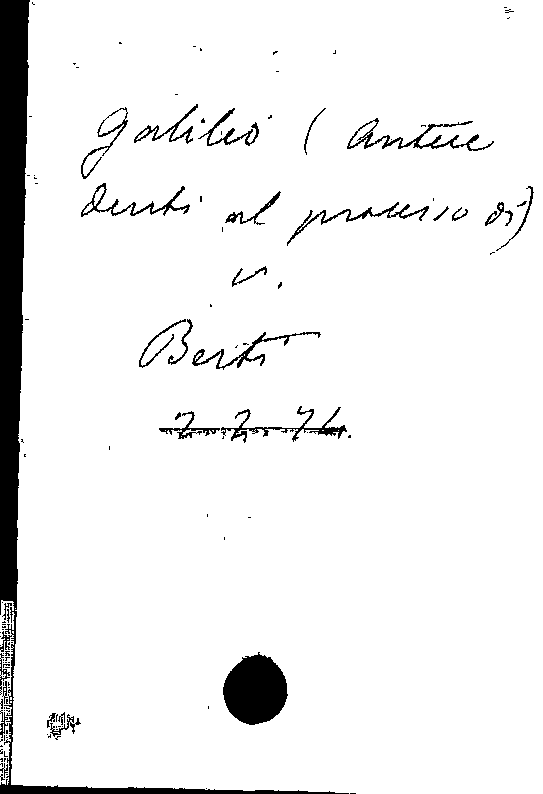 Galileo (Antece
denti al processo di)
v.
Berti